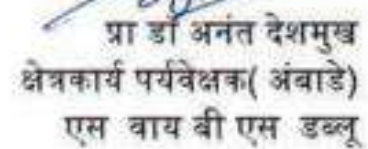 प्रा डॉ अनंत देशमुख
क्षेत्रकार्य पर्यवेक्षक( अंबाडे)
एस वाय बी एस डब्लू